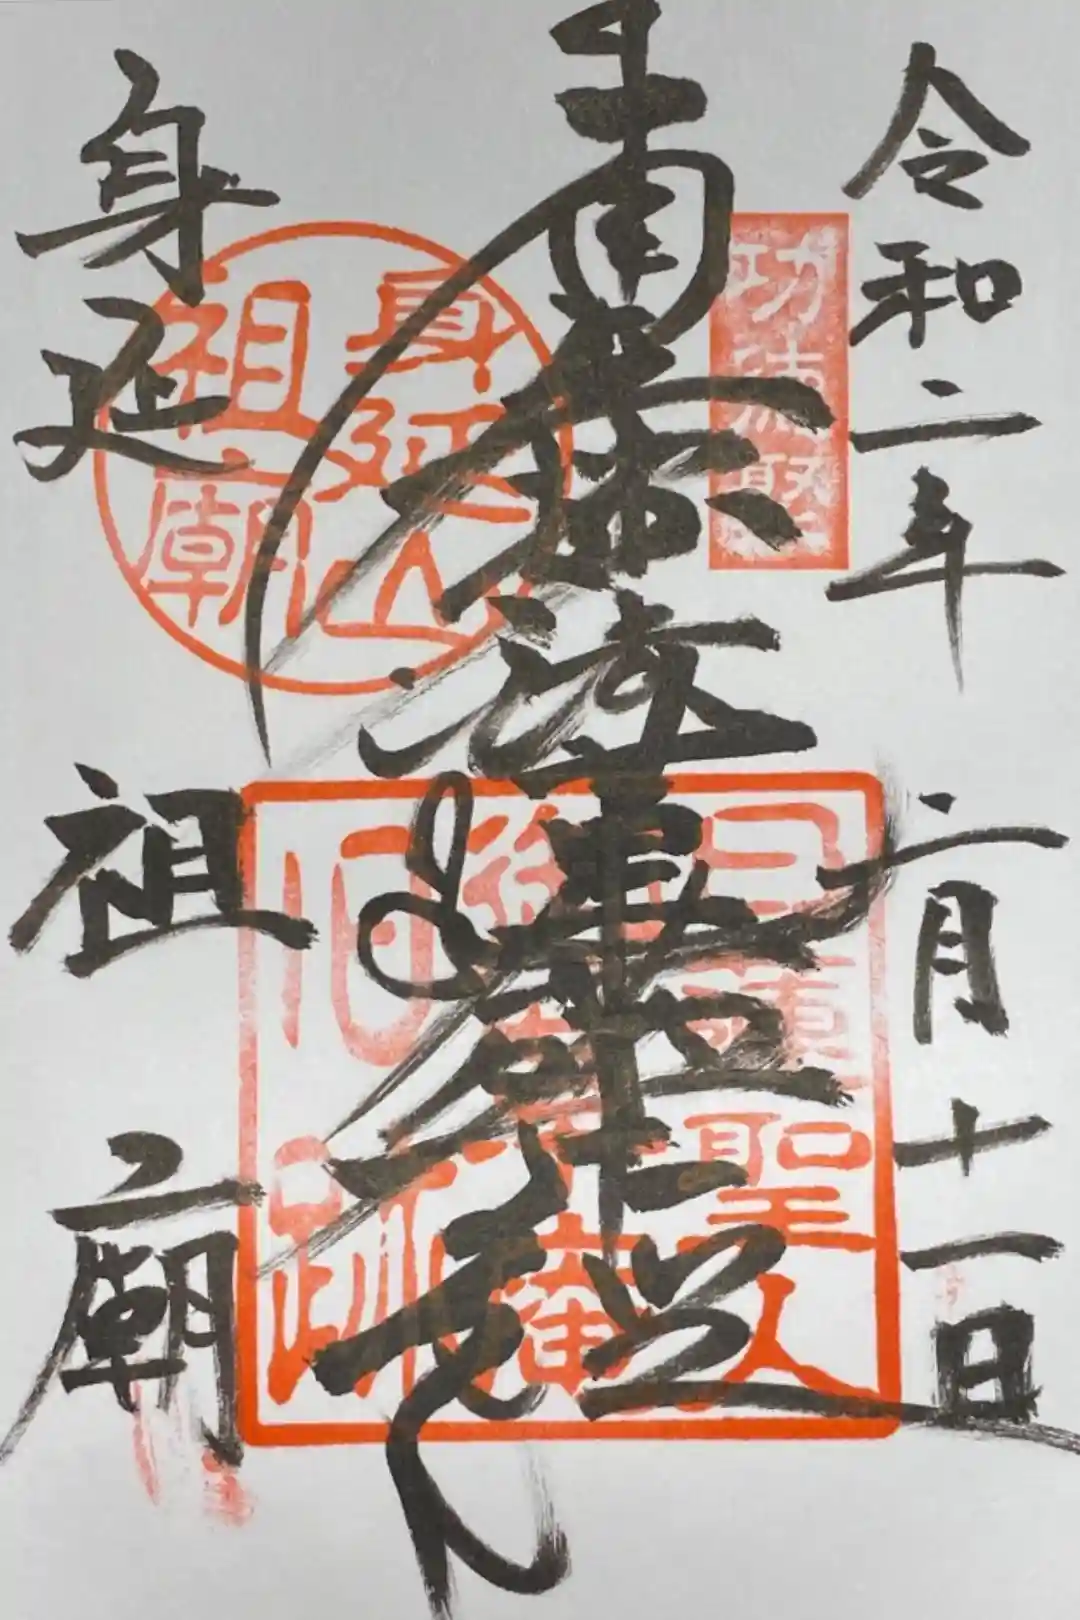 令和二年 二月十一日
功徳聚
南無妙法蓮華経
身延山
祖廟
日蓮聖人
御草庵
旧跡
身延 祖廟